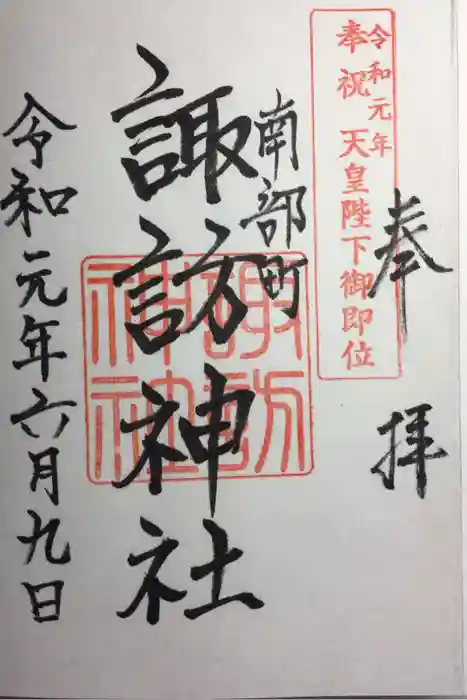 奉拝
令和元年
奉祝 天皇陛下御即位
南部町
諏訪神社
諏訪
神社
令和元年六月九日